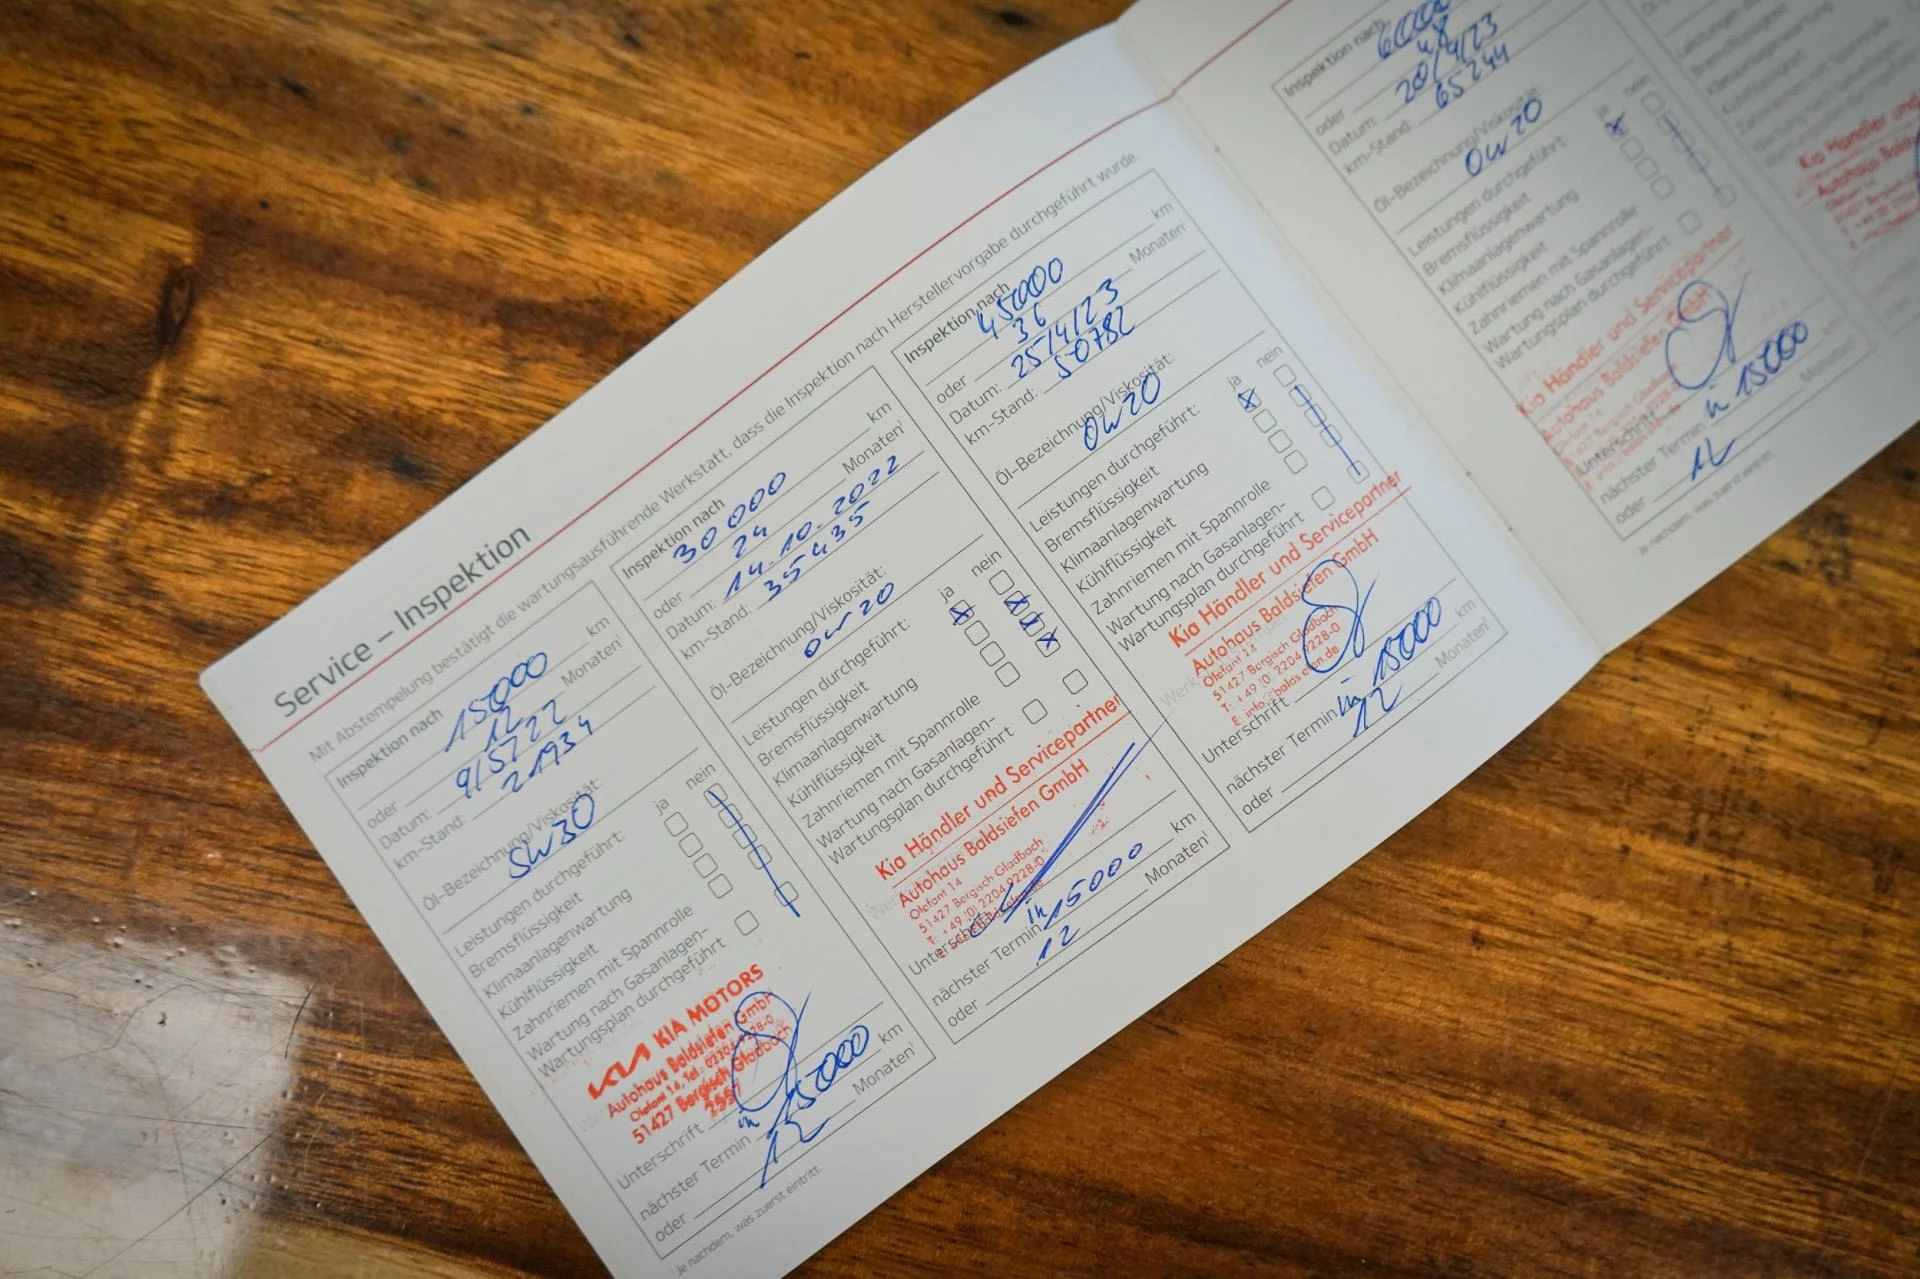 Service – Inspektion
Mit Abstempelung bestätigt die wartungsausführende Werkstatt, dass die Inspektion nach Herstellervorgabe durchgeführt wurde.
Inspektion nach 15000 km
oder 12 Monaten¹
Datum: 9/5/22
km-Stand: 21934
Öl-Bezeichnung/Viskosität:
5W30
Leistungen durchgeführt: ja nein
Bremsflüssigkeit
Klimaanlagenwartung
Kühlflüssigkeit
Zahnriemen mit Spannrolle
Wartung nach Gasanlagen-
Wartungsplan durchgeführt
KIA MOTORS
Autohaus Baldsiefen GmbH
Olefant 14, Tel. 02204-9228-0
51427 Bergisch Gladbach
Unterschrift
nächster Termin in 15000 km
oder 12 Monaten¹
¹ Je nachdem, was zuerst eintritt.
Inspektion nach 30000 km
oder 24 Monaten¹
Datum: 14.10.2022
km-Stand: 35435
Öl-Bezeichnung/Viskosität:
0W20
Leistungen durchgeführt: ja nein
Bremsflüssigkeit
Klimaanlagenwartung
Kühlflüssigkeit
Zahnriemen mit Spannrolle
Wartung nach Gasanlagen-
Wartungsplan durchgeführt
Kia Händler und Servicepartner
Autohaus Baldsiefen GmbH
Olefant 14
51427 Bergisch Gladbach
T: +49 (0) 2204 9228-0
Unterschrift
nächster Termin in 15000 km
oder 12 Monaten¹
Inspektion nach 45000 km
oder 36 Monaten¹
Datum: 25/4/23
km-Stand: 50782
Öl-Bezeichnung/Viskosität:
0W20
Leistungen durchgeführt: ja nein
Bremsflüssigkeit
Klimaanlagenwartung
Kühlflüssigkeit
Zahnriemen mit Spannrolle
Wartung nach Gasanlagen-
Wartungsplan durchgeführt
Kia Händler und Servicepartner
Autohaus Baldsiefen GmbH
Olefant 14
51427 Bergisch Gladbach
T: +49 (0) 2204 9228-0
Unterschrift
nächster Termin in 15000 km
oder 12 Monaten¹
Inspektion nach 60000
oder 48
Datum: 20/9/23
km-Stand: 65244
Öl-Bezeichnung/Viskosität:
0W20
Leistungen durchgeführt: ja nein
Bremsflüssigkeit
Klimaanlagenwartung
Kühlflüssigkeit
Zahnriemen mit Spannrolle
Wartung nach Gasanlagen-
Wartungsplan durchgeführt
Kia Händler und Servicepartner
Autohaus Baldsiefen GmbH
Unterschrift
nächster Termin in 15000 km
oder 12 Monaten¹
¹ Je nachdem, was zuerst eintritt.
Kia Händler und
Autohaus